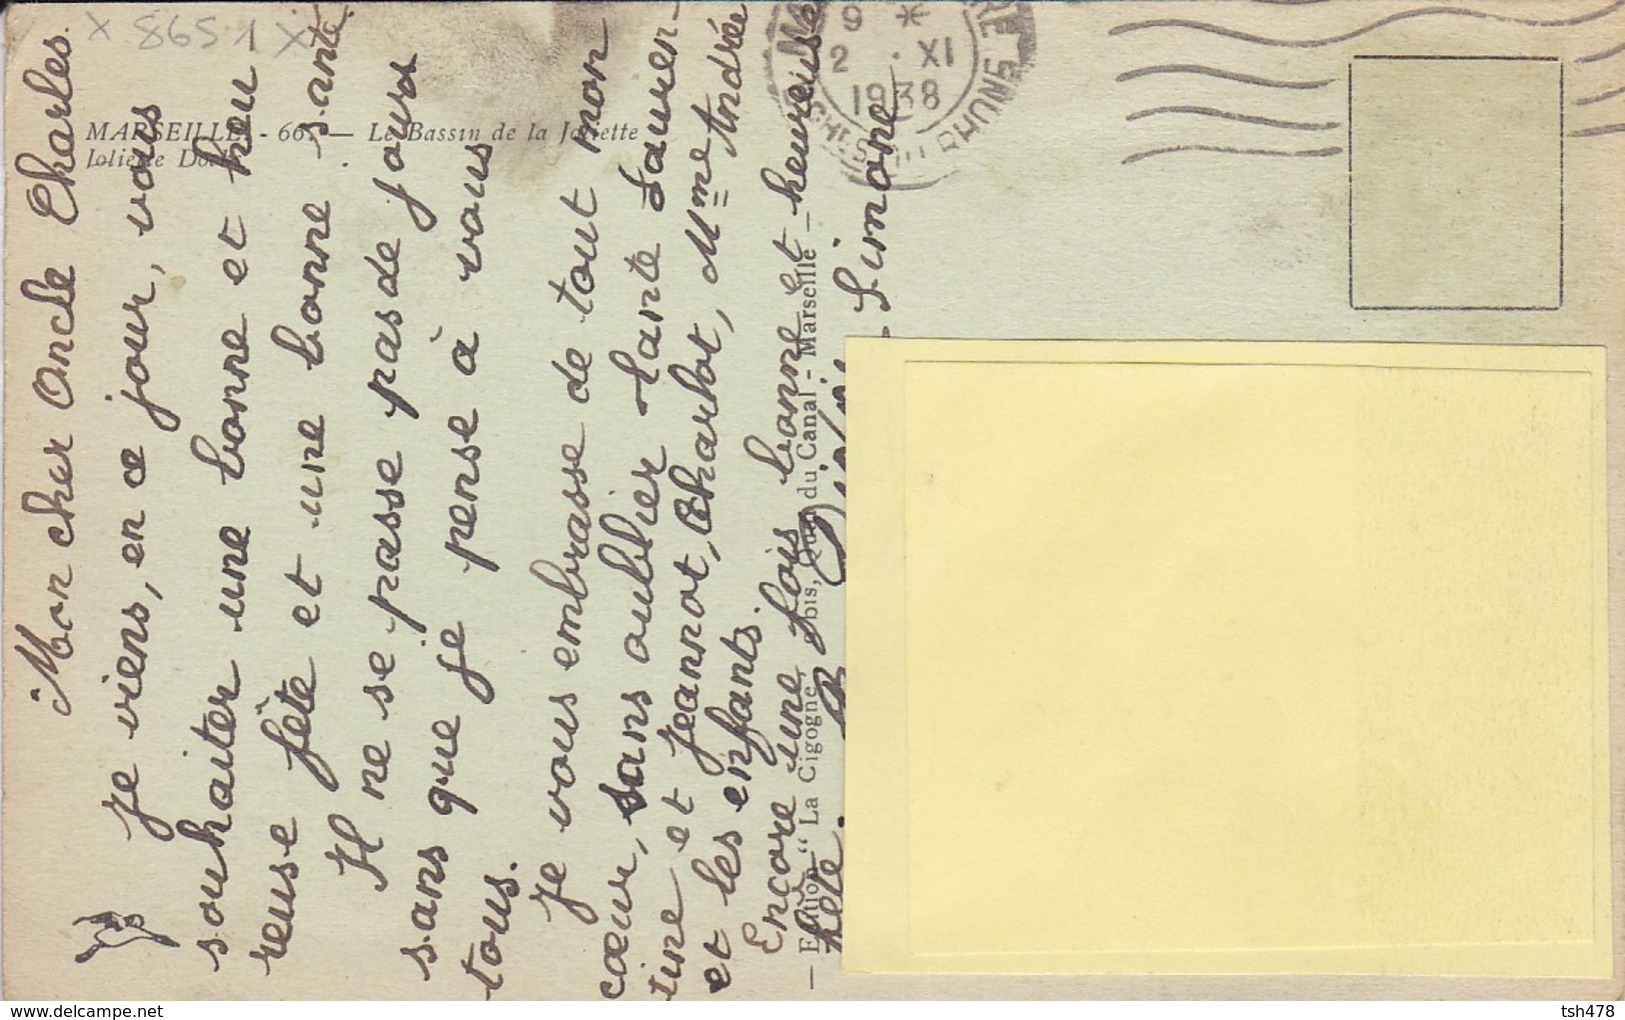 x 86S1 x
MARSEILLE. - 66. — Le Bassin de la Joliette
Joliette
Mon cher Oncle Charles.
Je viens, en ce jour, vous
souhaiter une bonne et heu
reuse fête et une bonne santé
Il ne se passe pas de jours
sans que je pense à vous
tous.
Je vous embrasse de tout mon
cœur, sans oublier tante Lauren-
tine et Jeannot, Charlot, Mme Andrée
et les enfants.
Encore une fois bonne et heureuse
fête.
Simone
— Edition " La Cigogne Quai du Canal - Marseille —
9 *
2 . XI
1938
RE
BCHES DU RHÔNE
tsh478